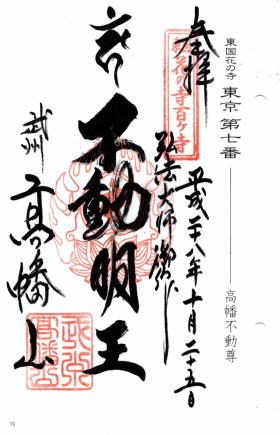 東国花の寺 東京 第七番 高幡不動尊
奉拝
平成二十八年十月二十五日
東国花の寺百ヶ寺
弘法大師御作
不動明王
武州
高幡山
16